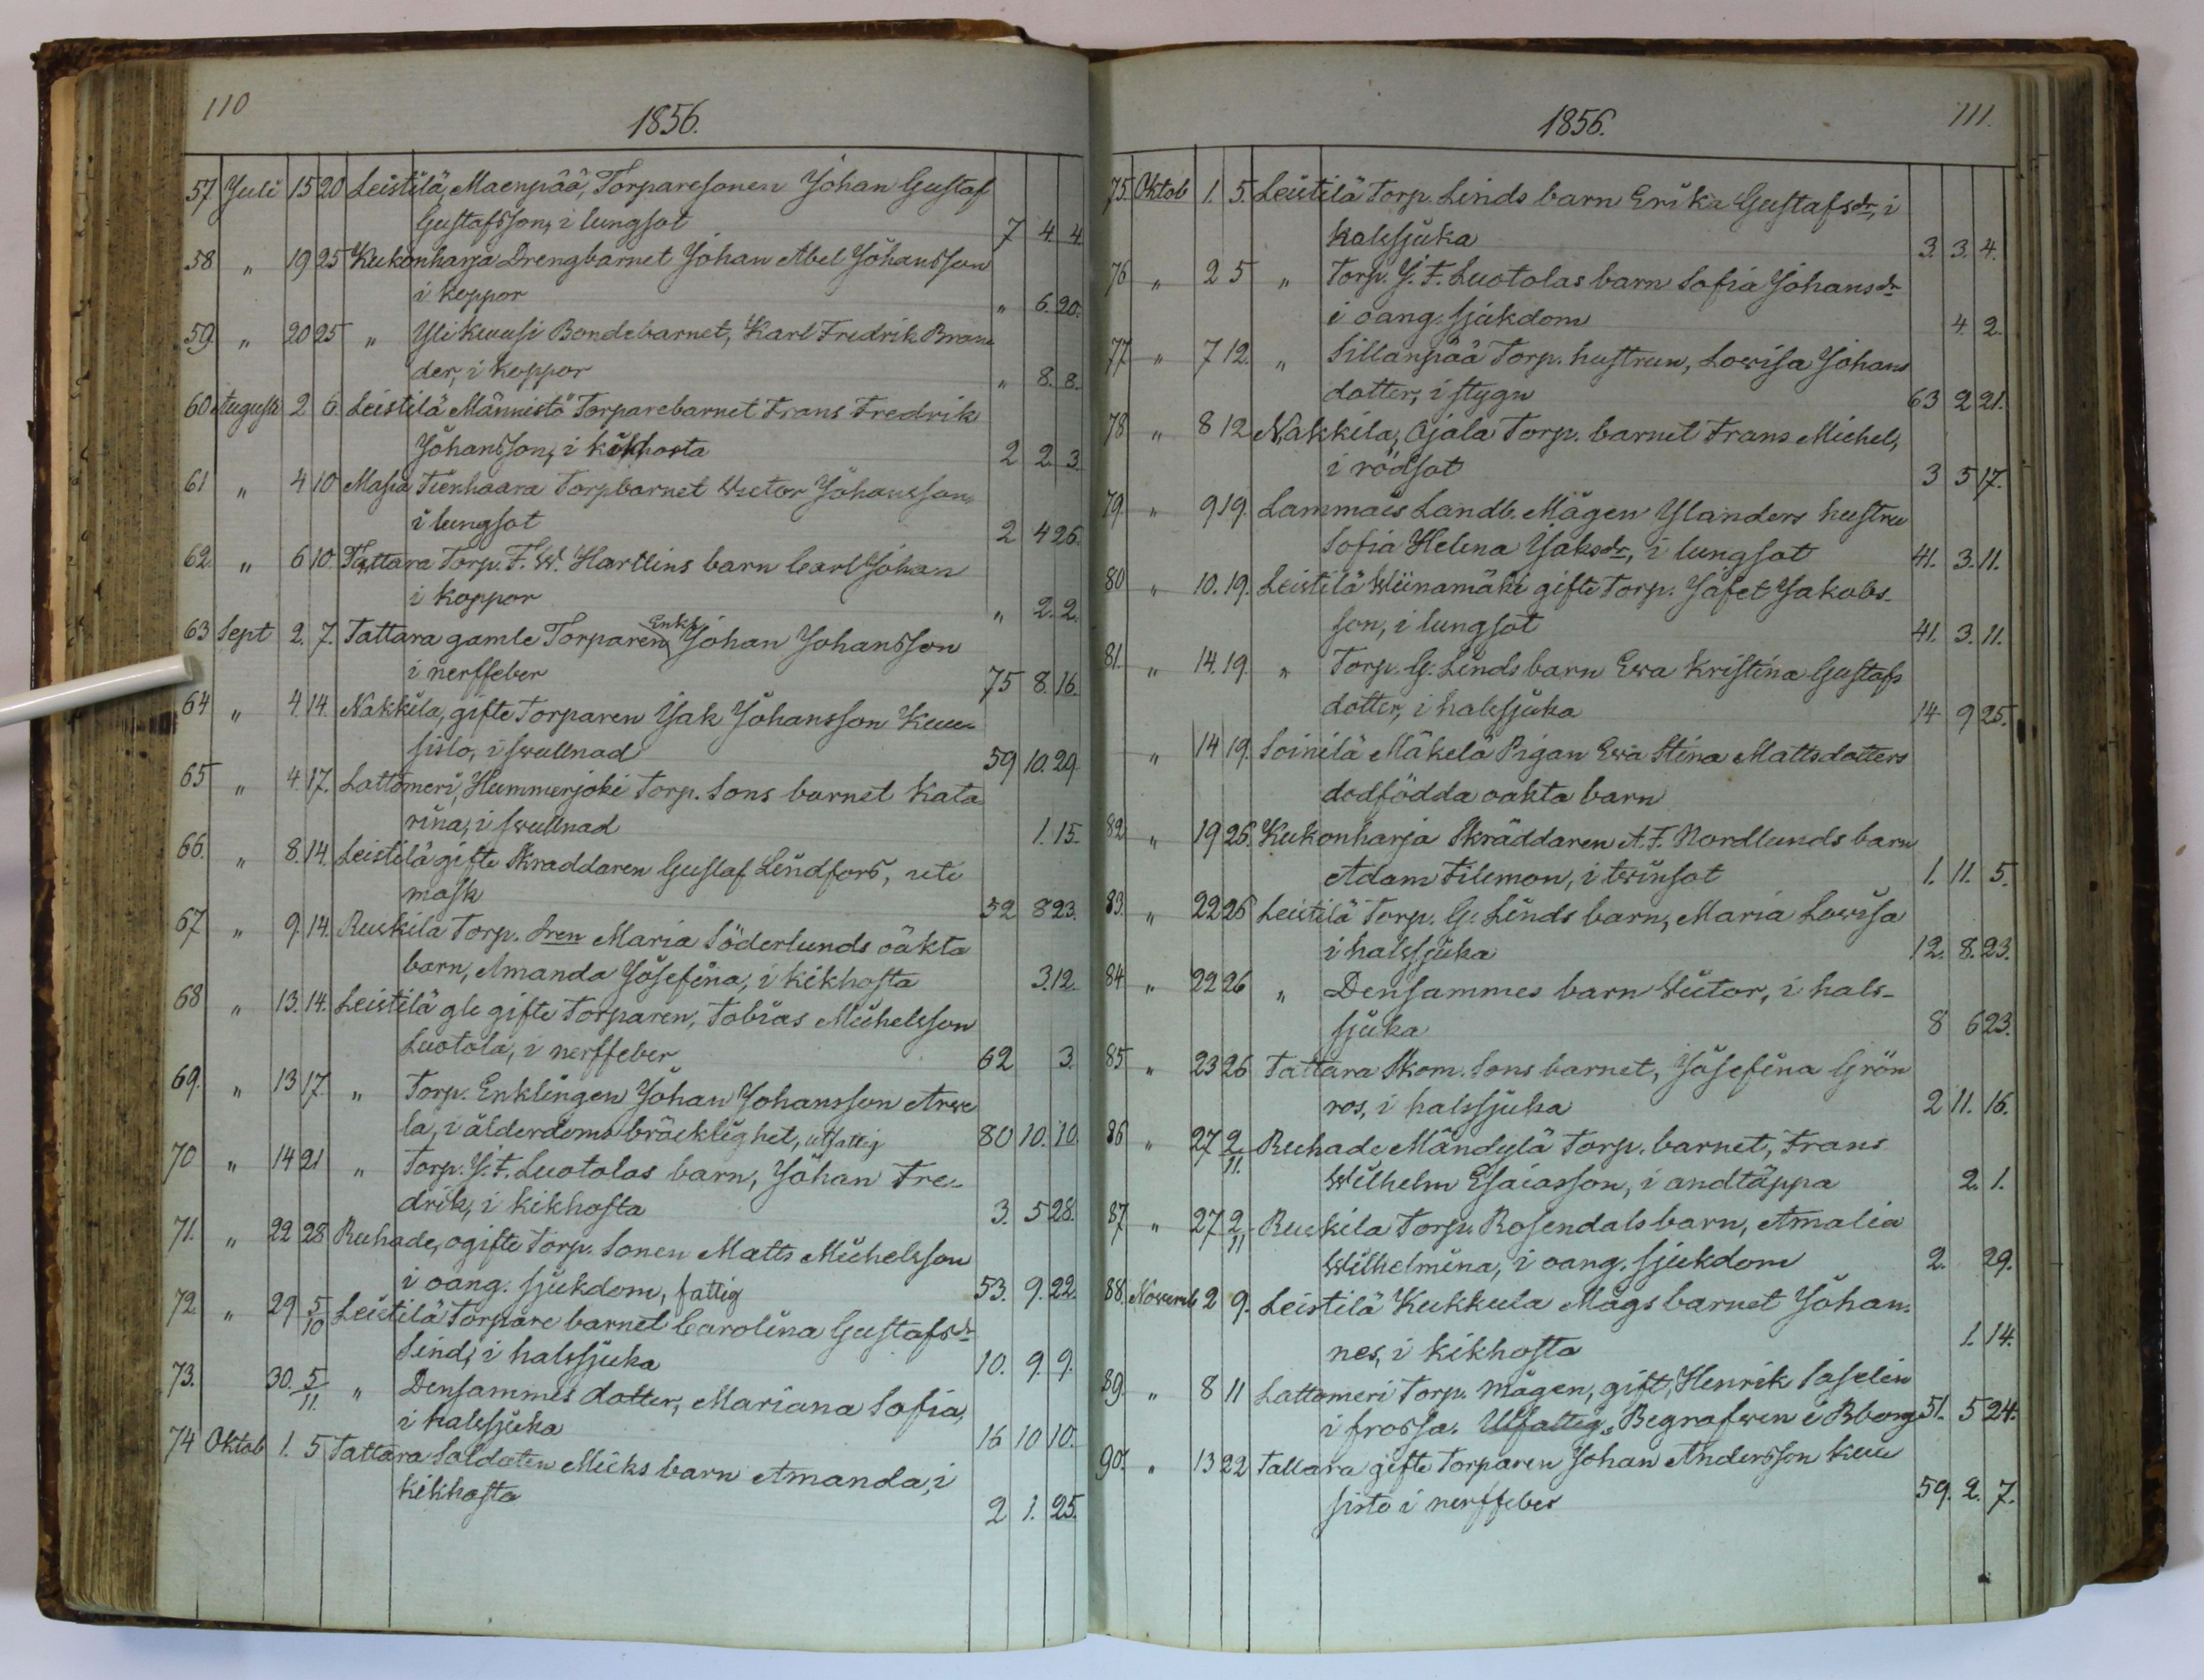 110
1856.
57 Juli 15 20 Leistilä, Maenpää, Torparesonen Johan Gustaf
Gustafsson, i lungsot 7 4. 4.
58 " 19 25 Kukonharja Drengbarnet Johan Abel Johansson
i koppor " 6. 20.
59. " 20 25 " Yli Kuusi Bondebarnet, Karl Fredrik Bran
der, i koppor " 8. 8.
60 Augusti 2 6. Leistilä Männistö Torparebarnet Frans Fredrik
Johansson, i kikhosta 2 2. 3.
61 " 4 10 Masia Tienhaara Torpbarnet Victor Johansson,
i lungsot 2 4 26.
62. " 6 10. Tattara Torp. F. W. Hartlins barn Carl Johan
i koppor " 2. 2.
63 Sept 2. 7. Tattara gamle Torparen Enkl. Johan Johansson
i nerffeber 75 8. 16.
64 " 4. 14. Nakkila, gifte Torparen Jak Johansson Kuu-
sisto, i swullnad 59 10. 29.
65 " 4. 17. Lattomeri, Hummerjoki Torp. Sons barnet Kata
rina, i swullnad 1. 15.
66. " 8. 14. Leistilä gifte Skraddaren Gustaf Lindfors, uti
mask 52 8 23.
67 " 9. 14. Ruskila Torp. dren Maria Söderlunds oäkta
barn, Amanda Josefina, i kikhosta 3. 12.
68 " 13. 14. Leistilä gle gifte Torparen, Tobias Michelsson
Luotola, i nerffeber 62 3.
69. " 13 17. " Torp. Enklingen Johan Johansson Arwe
la, i ålderdoms bräcklighet, utfattig 80 10. 10.
70 " 14 21 " Torp. J. F. Luotolas barn, Johan Fre-
drik, i kikhosta 3. 5 28.
71. " 22 28 Ruhade, ogifte Torp. Sonen Matts Michelsson
i oang. sjukdom, fattig 53. 9. 22.
72. " 29 5/10 Leistilä Torpare barnet Carolina Gustafsdr
Lind, i halssjuka 10. 9. 9.
73. 30. 5/11. " Densammes dotter, Mariana Sofia,
i halssjuka 16 10 10.
74 Oktob 1. 5 Tattara Soldaten Micks barn Amanda, i
kikhosta 2 1. 25.
1856.
111.
75. Oktob 1. 5. Leistilä Torp. Linds barn Erika Gustafsdr, i
halssjuka 3. 3. 4.
76 " 2 5 " Torp. J. F. Luotolas barn Sofia Johansdr
i oang. sjukdom 4. 2.
77 " 7 12. " Sillanpää Torp. hustrun, Lowisa Johans
dotter, i stygn 63 2 21.
78 " 8 12 Nakkila, Ojala Torp. barnet Frans Michel,
i rödsot 3 5 17.
79. " 9 19. Lammais Landb. Mågen Ylanders hustru
Sofia Helena Jaksdr, i lungsot 41. 3. 11.
80 " 10. 19. Leistilä Wiinamäki gifte Torp. Jafet Jakobs-
son, i lungsot 41. 3. 11.
81. " 14. 19. " Torp. G. Linds barn Ewa Kristina Gustafs
dotter, i halssjuka 14 9 25.
" 14 19. Soinilä Mäkelä Pigan Ewa Stina Mattsdotters
dödfödda oäkta barn
82 " 19 26. Kukonharja Skräddaren A. F. Nordlunds barn
Adam Filemon, i twinsot 1. 11. 5.
83. " 22 26 Leistilä Torp. G. Linds barn, Maria Lowisa
i halssjuka 12. 8. 23.
84 " 22 26 " Densammes barn Victor, i hals-
sjuka 8 6 23.
85 " 23 26 Tattara Skom. Sons barnet, Josefina Grön
ros, i halssjuka 2 11. 16.
86 " 27 2/11. Ruhade Mändylä Torp. barnet, Frans
Wilhelm Esaiasson, i andtäppa 2. 1.
87. " 27 2/11 Ruskila Torp. Rosendals barn, Amalia
Wilhelmina, i oang. sjukdom 2. 29.
88. Novemb 2 9. Leistilä Kukkula Mågs barnet Johan-
nes, i kikhosta 1. 14.
89. " 8 11 Lattomeri Torp. mågen, gift, Henrik Saselin
i frossa. Utfattig. Begrafwen i Bborg 51. 5 24.
90. " 13 22 Tattara gifte Torparen Johan Andersson Kuu
sisto i nerffeber 59. 2. 7.